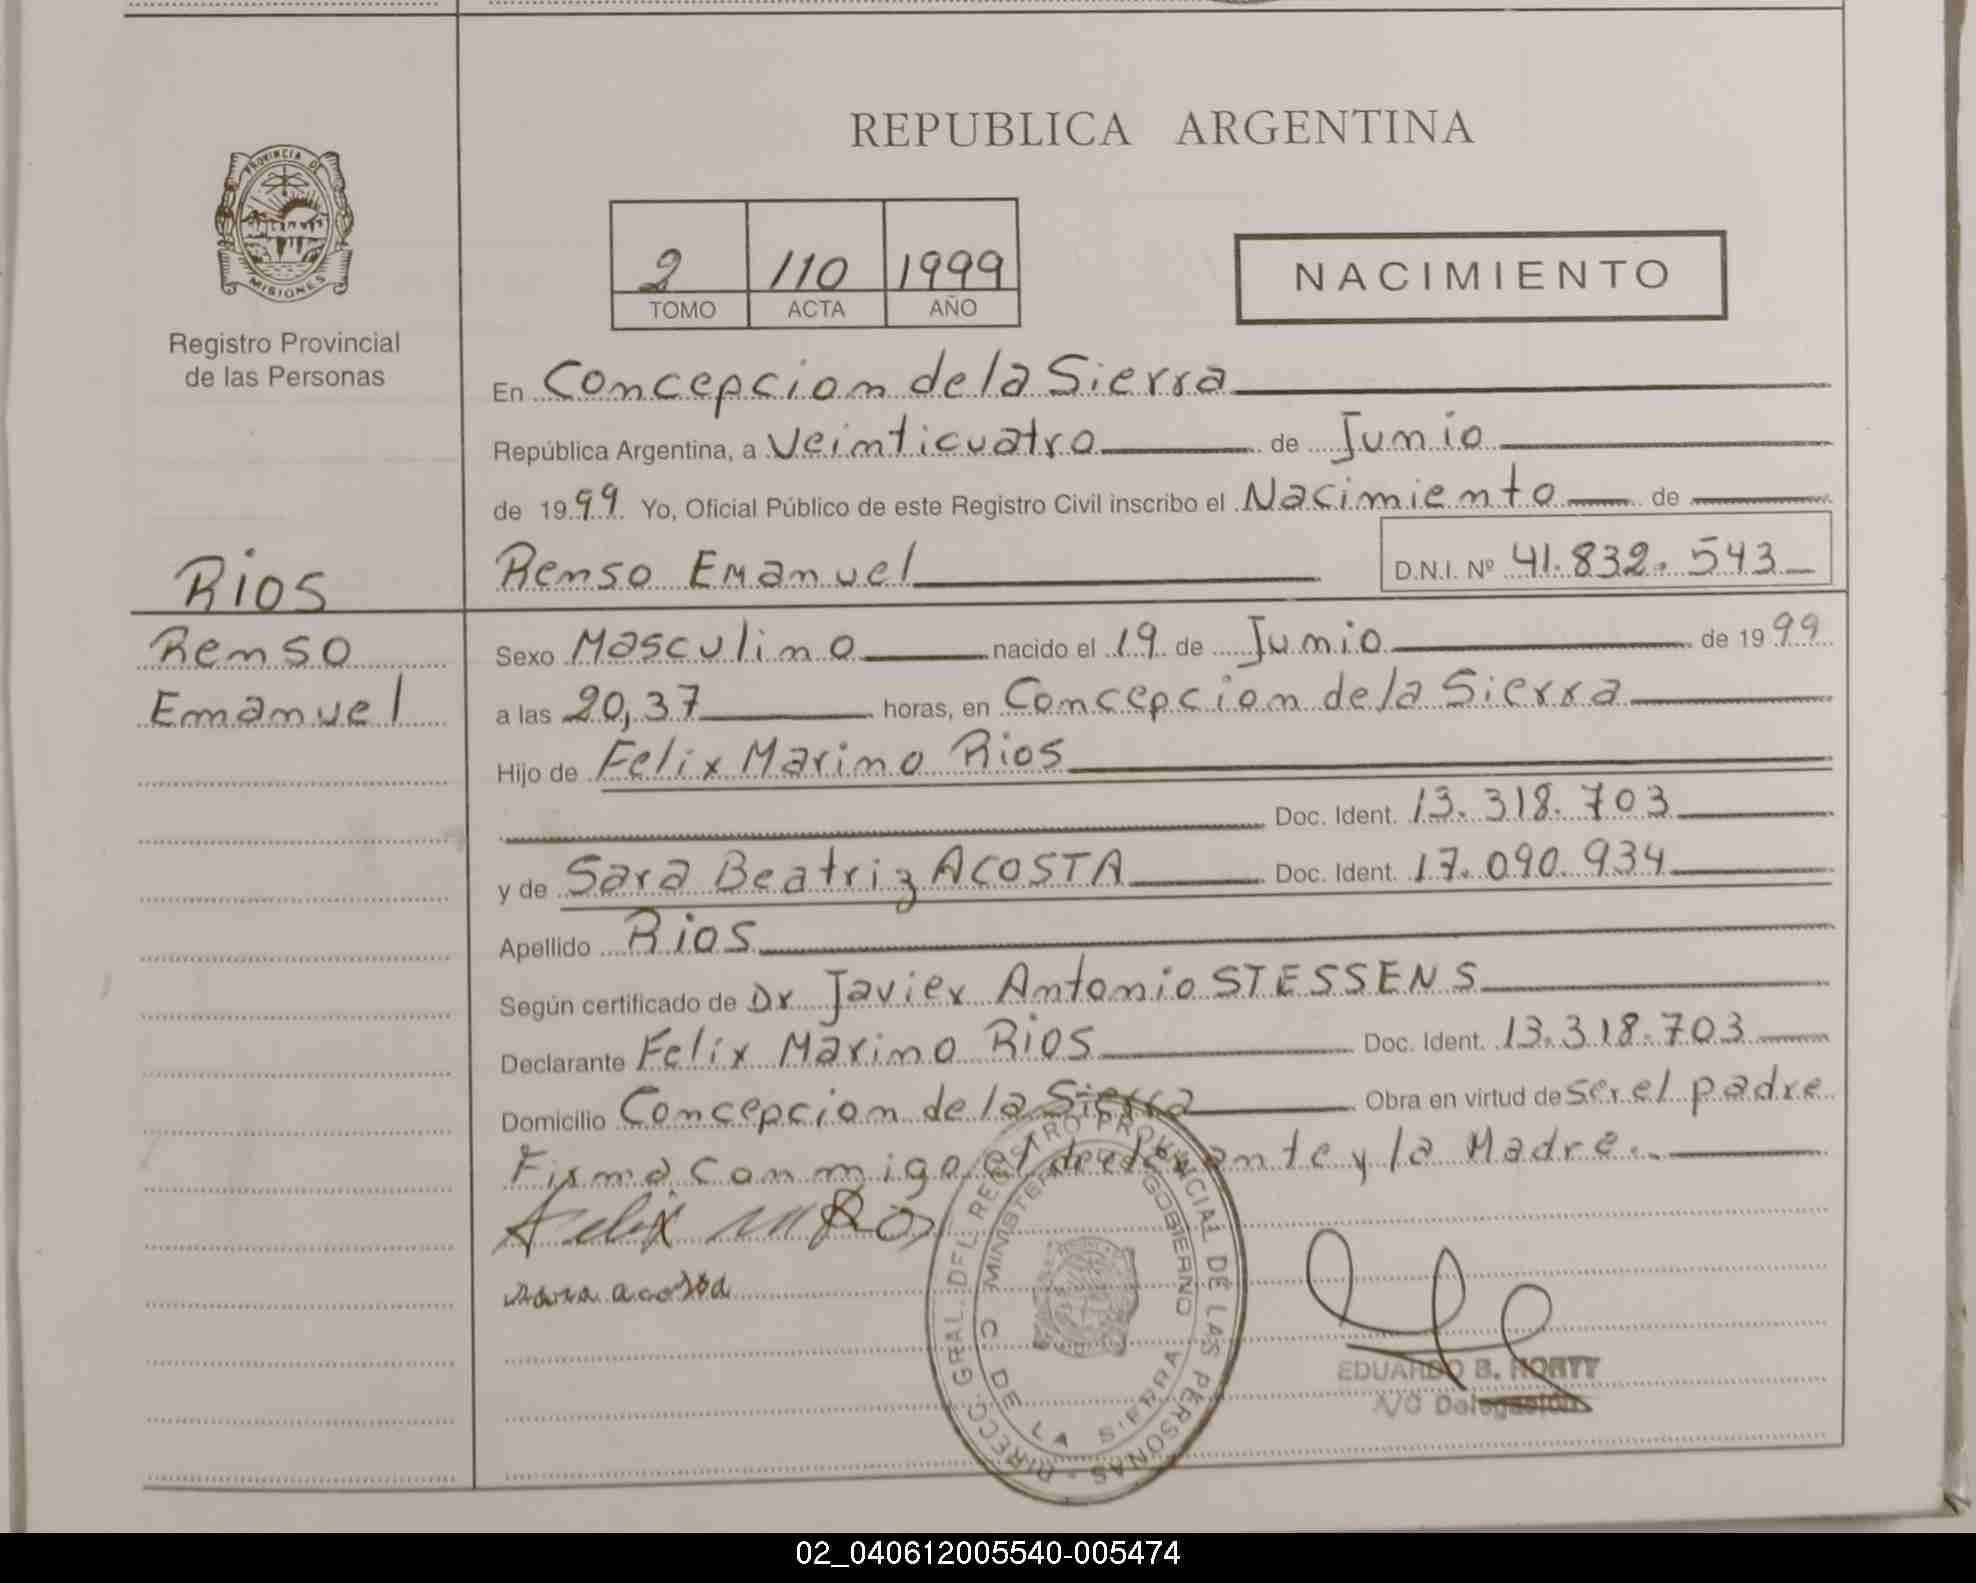 PROVINCIA DE
MISIONES
Registro Provincial
de las Personas
RIOS
Renso
Emanuel
REPUBLICA ARGENTINA
2 110 1999
TOMO ACTA AÑO
NACIMIENTO
En Concepcion de la Sierra
República Argentina, a Veinticuatro de Junio
de 1999 Yo, Oficial Público de este Registro Civil inscribo el Nacimiento de
Renso Emanuel D.N.I. Nº 41.832.543
Sexo Masculino nacido el 19 de Junio de 1999
a las 20,37 horas, en Concepcion de la Sierra
Hijo de Felix Marino Rios
Doc. Ident. 13.318.703
y de Sara Beatriz ACOSTA Doc. Ident. 17.090.934
Apellido Rios
Según certificado de Dr Javier Antonio STESSENS
Declarante Felix Marino Rios Doc. Ident. 13.318.703
Domicilio Concepcion de la Sierra Obra en virtud de ser el padre
Firma conmigo el declarante y la Madre.
Felix M Rios
Sara acosta
DIRECC. GRAL. DEL REGISTRO PROVINCIAL DE LAS PERSONAS
MINISTERIO GOBIERNO
C. DE LA SIERRA
EDUARDO B.
A/C Delegación
02_040612005540-005474